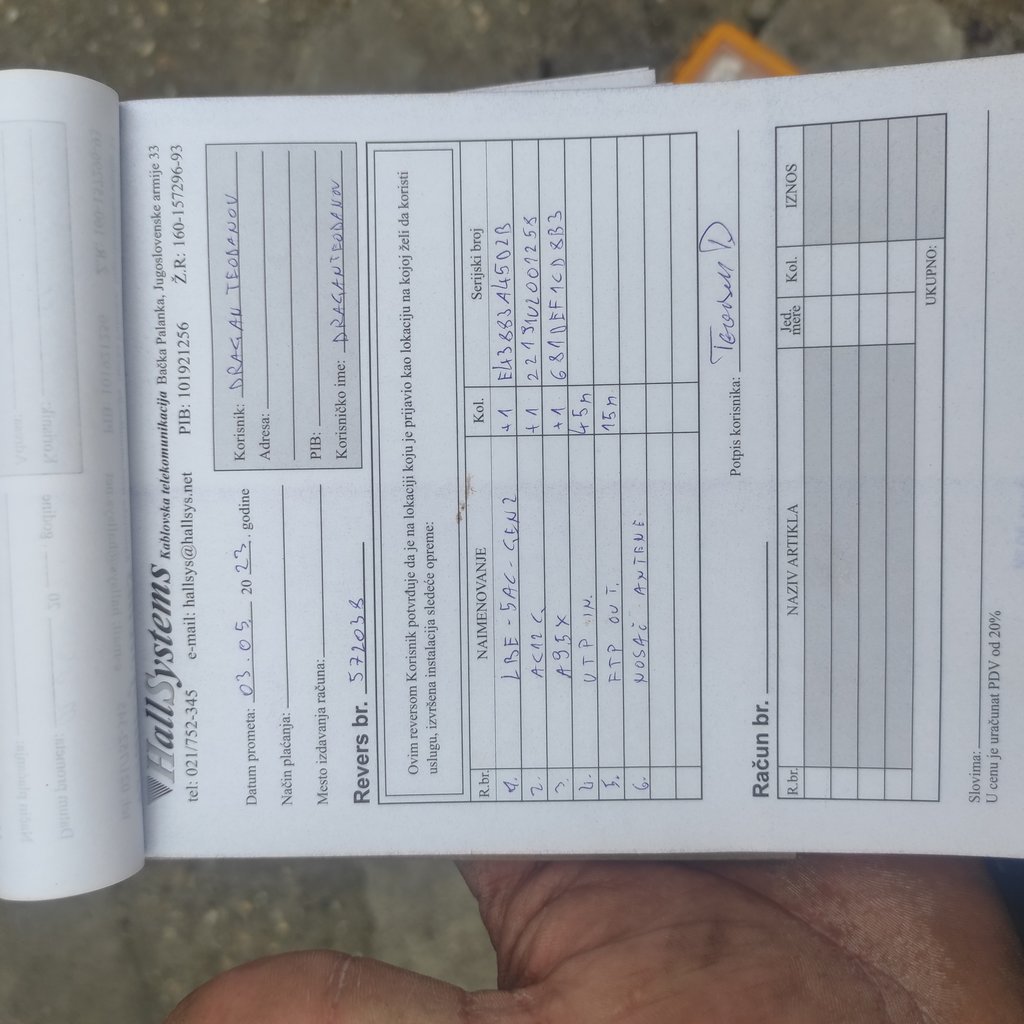 HallSystems Kablovska telekomunikacija Bačka Palanka, Jugoslovenske armije 33
tel: 021/752-345 e-mail: hallsys@hallsys.net PIB: 101921256 Ž.R: 160-157296-93
Datum prometa: 03.05. 2023. godine
Način plaćanja:
Mesto izdavanja računa:
Korisnik: DRAGAN TEODANOV
Adresa:
PIB:
Korisničko ime: DRAGANTEODANOV
Revers br. 57203B
Ovim reversom Korisnik potvrđuje da je na lokaciji koju je prijavio kao lokaciju na kojoj želi da koristi
uslugu, izvršena instalacija sledeće opreme:
R.br. NAIMENOVANJE Kol. Serijski broj
1. LBE-5AC-GEN2 +1 E43883A4502B
2. AC12C +1 22191V2001258
3. A95X +1 681DEF1CD8B3
4. UTP IN. 45m
5. FTP OUT. 15m
6. NOSAČ ANTENE
Potpis korisnika:
Račun br.
R.br. NAZIV ARTIKLA Jed. mere Kol. IZNOS
UKUPNO:
Slovima:
U cenu je uračunat PDV od 20%